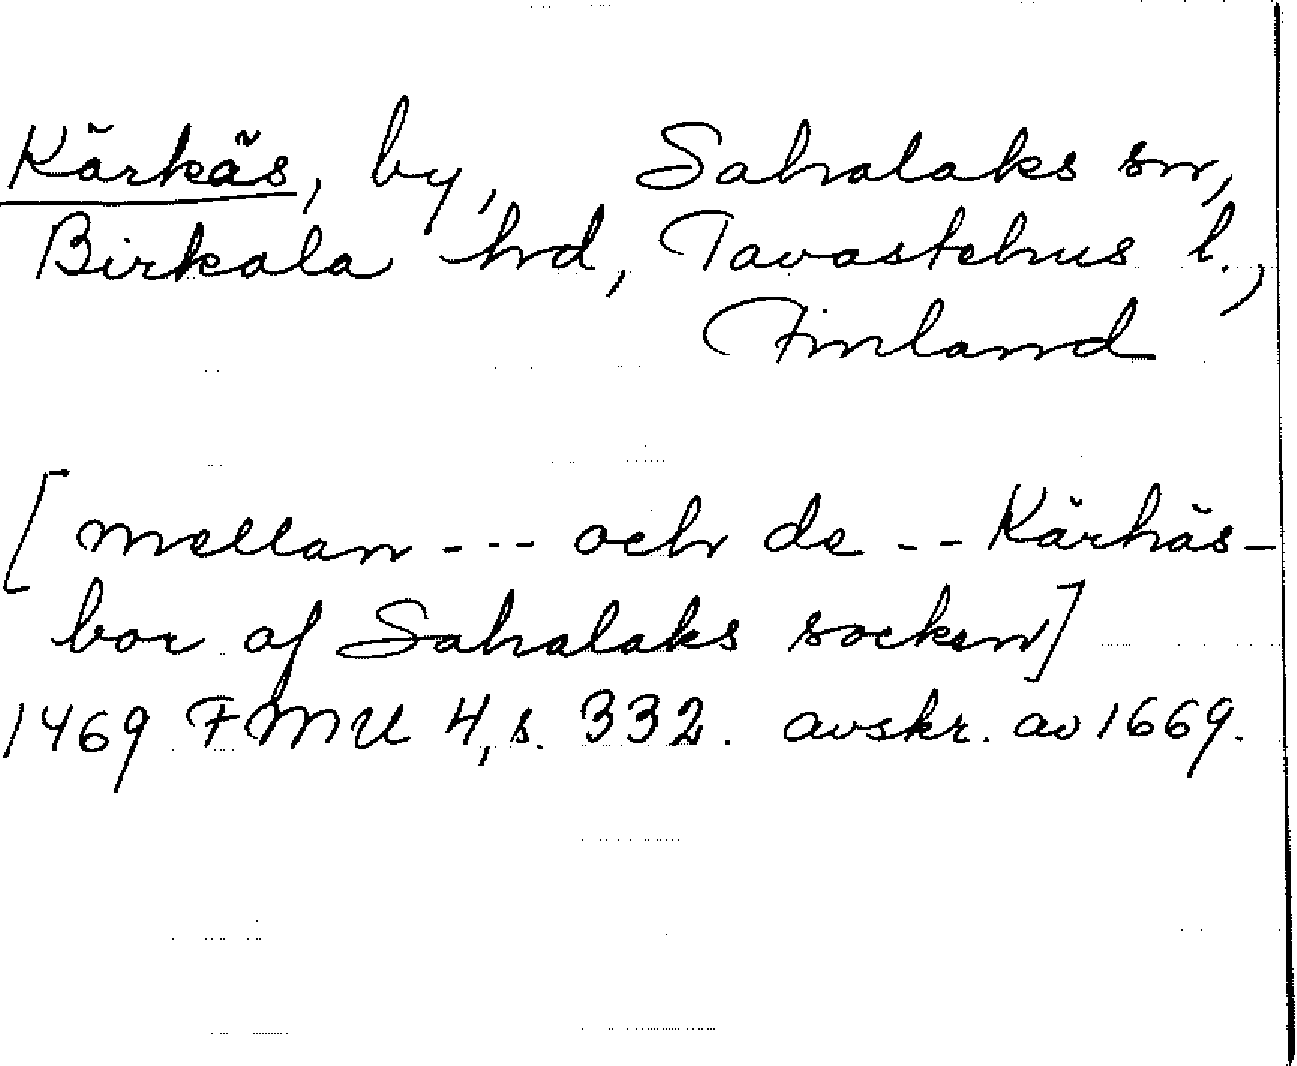 Kärkäs, by, Sahalaks sn,
Birkala hd, Tavastehus l.,
Finland
[mellan --- och de -- Kärkäs-
bor af Sahalaks socken]
1469 FMU 4, s. 332. avskr. av 1669.